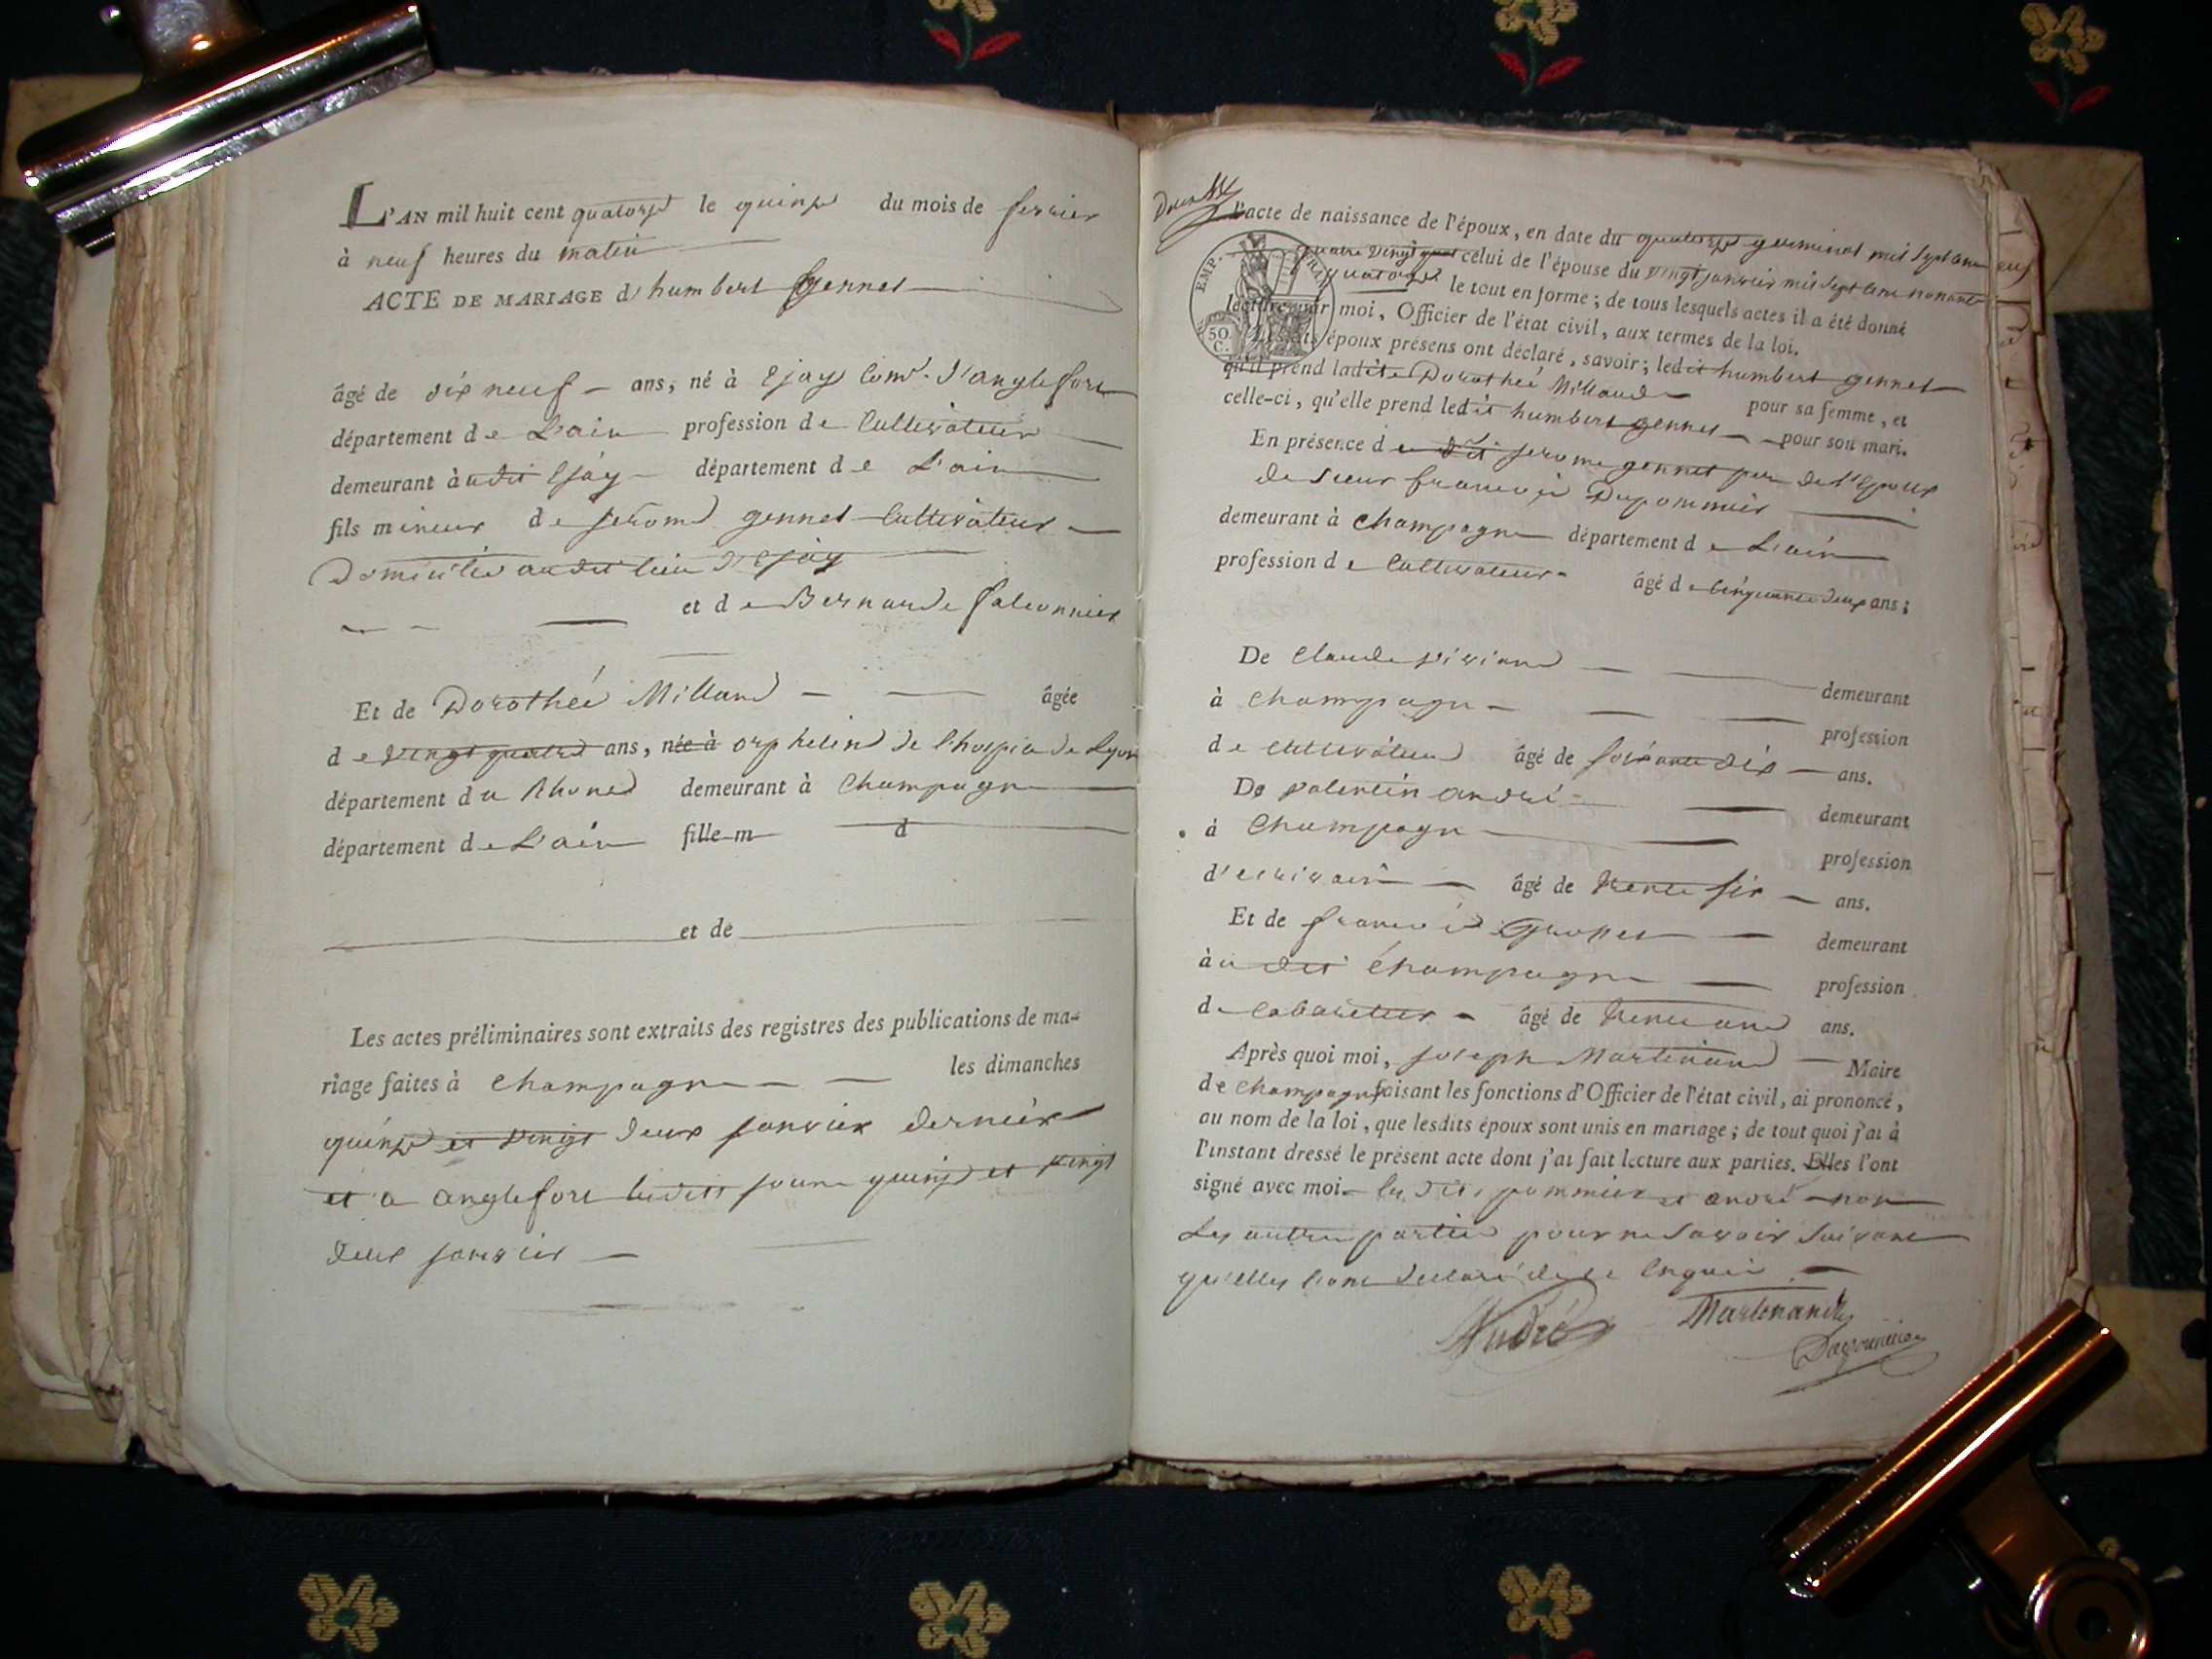 L'AN mil huit cent quatorze le quinze du mois de fevrier
à neuf heures du matin
ACTE DE MARIAGE d'humbert gennet
âgé de dix neuf ans, né à Ejay Com.e d'anglefort
département de L'ain profession de Cultivateur
demeurant àudit Ejay département de L'ain
fils mineur de jerome gennet Cultivateur
Domicilié audit lieu d'Ejay
et de Bernarde falconnier
Et de Dorothée Milland âgée
de vingt quatre ans, née à orpheline de l'hospice de Lyon
département du Rhone demeurant à Champagne
département de L'ain fille m d
et de
Les actes préliminaires sont extraits des registres des publications de ma-
riage faites à Champagne les dimanches
quinze et vingt deux janvier dernier
et a anglefort lesdits jours quinze et vingt
deux janvier
l'acte de naissance de l'époux, en date du quatorze germinal mil sept cent
quatre vingt celui de l'épouse du vingt janvier mil sept cent nonante
quatorze le tout en forme; de tous lesquels actes il a été donné
EMP. FRAN
50 C.
lecture par moi, Officier de l'état civil, aux termes de la loi.
Lesdits époux présens ont déclaré, savoir; ledit humbert gennet
qu'il prend ladite Dorothée Milland pour sa femme, et
celle-ci, qu'elle prend ledit humbert gennet pour son mari.
En présence de dit jerome gennet pere de l'Epoux
de sieur francois Dupommier
demeurant à Champagne département de L'ain
profession de Cultivateur âgé de cinquante deux ans;
De Claude Viviand demeurant
à Champagne profession
de Cultivateur âgé de soixante dix ans.
De valentin andré demeurant
à Champagne profession
d'ecrivain âgé de trente six ans.
Et de francois demeurant
àudit Champagne profession
de Cabaretier âgé de trente une ans.
Après quoi moi, joseph Martinand Maire
de Champagne faisant les fonctions d'Officier de l'état civil, ai prononcé,
au nom de la loi, que lesdits époux sont unis en mariage; de tout quoi j'ai à
l'instant dressé le présent acte dont j'ai fait lecture aux parties. Elles l'ont
signé avec moi les dits pommier et andré non
Les autres parties pour ne savoir suivant
qu'elles l'ont declaré de ce Enquis
André Martinand
Dupommier